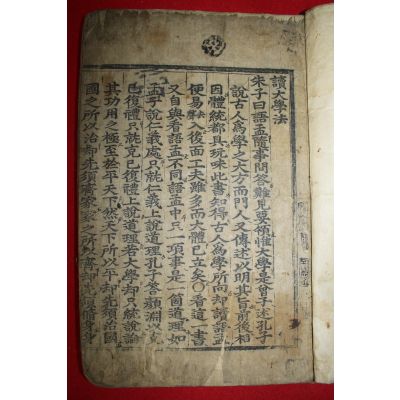 讀大學法
朱子曰語孟隨事問答難見要領惟大學是曾子述孔子
說古人爲學之大方而門人又傳述以明其旨前後相
因體統都具玩味此書知得古人爲學所向却讀語孟
便易入後面工夫雖多而大體已立矣○看這一書
又自與看語孟不同語孟中只一項事是一箇道理如
孟子說仁義處只就仁義上說道理孔子答顏淵以克
己復禮只就克己復禮上說道理若大學却只統說論
其功用之極至於平天下然天下所以平却先須治國
國之所以治却先須齊家家之所以齊却先須脩身身